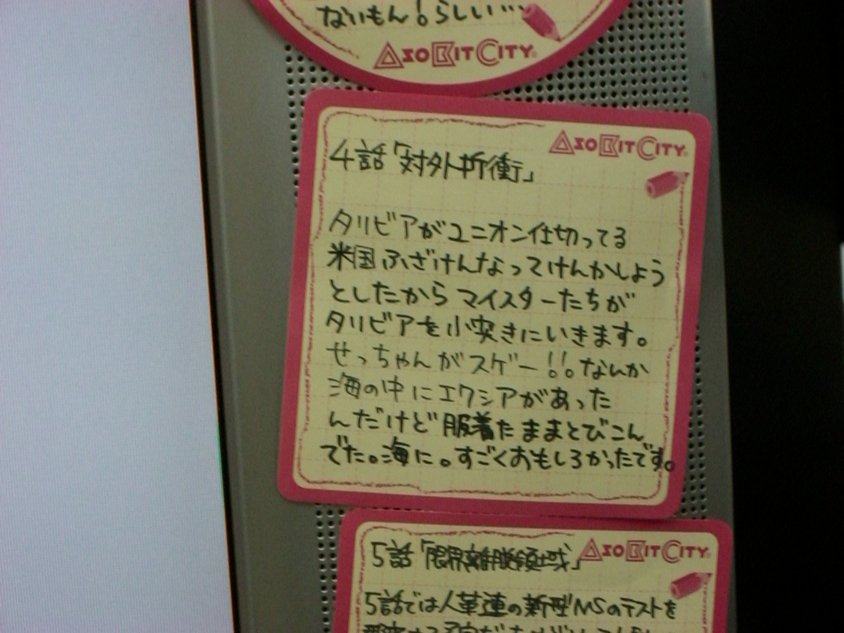 ないもん!らしい…
ASOBITCITY
ASOBITCITY
4話「対外折衝」
タリビアがユニオン仕切ってる
米国ふざけんなってけんかしよう
としたから マイスターたちが
タリビアを小突きにいきます。
せっちゃんがスゲー!!なんか
海の中にエクシアがあった
んだけど服着たままとびこん
でた。海に。すごくおもしろかったです。
ASOBITCITY
5話「限界離脱領域」
5話では人革連の新型MSのテストを